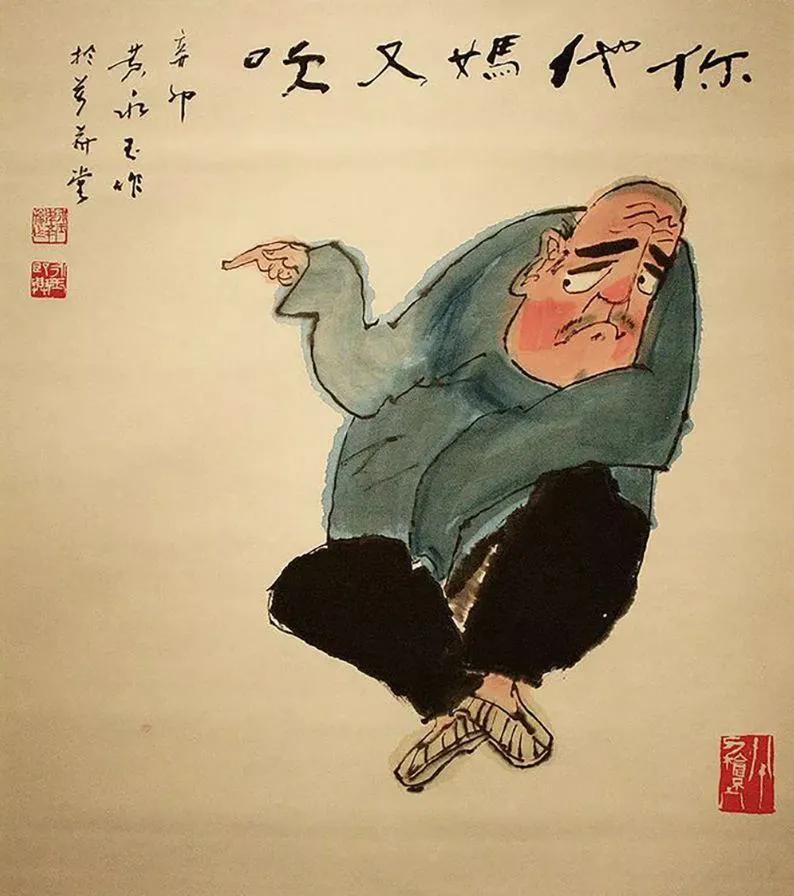 你他媽又吹
辛卯
黃永玉作
於萬荷堂